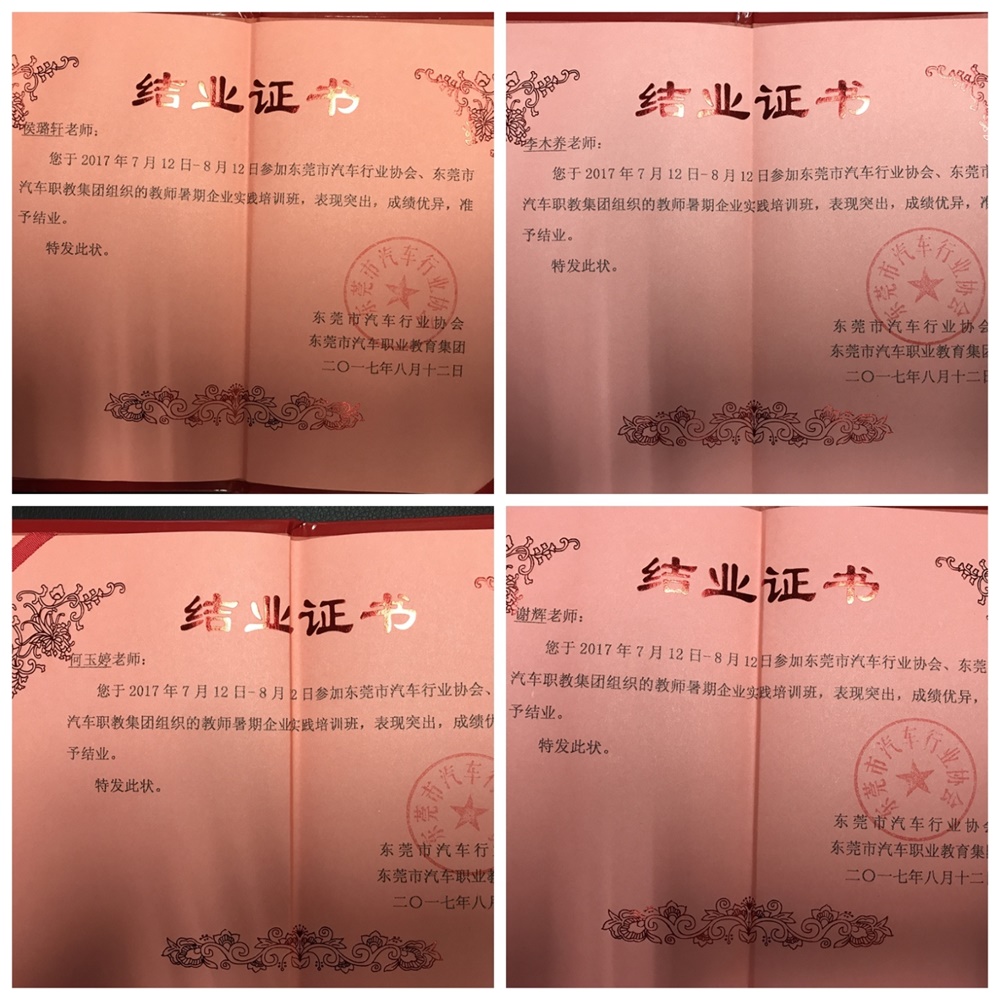 结业证书
侯璐轩老师：
您于2017年7月12日-8月12日参加东莞市汽车行业协会、东莞市
汽车职教集团组织的教师暑期企业实践培训班，表现突出，成绩优异，准
予结业。
特发此状。
东莞市汽车行业协会
东莞市汽车行业协会
东莞市汽车职业教育集团
二〇一七年八月十二日
结业证书
李木养老师：
您于2017年7月12日-8月12日参加东莞市汽车行业协会、东莞市
汽车职教集团组织的教师暑期企业实践培训班，表现突出，成绩优异，准
予结业。
特发此状。
东莞市汽车行业协会
东莞市汽车行业协会
东莞市汽车职业教育集团
二〇一七年八月十二日
结业证书
何玉婷老师：
您于2017年7月12日-8月 2日参加东莞市汽车行业协会、
汽车职教集团组织的教师暑期企业实践培训班，表现突出，成绩优
予结业。
特发此状。
东莞市汽车行业
东莞市汽车行
东莞市汽车职业
二〇一七年八月
结业证书
谢辉老师：
您于2017年7月12日-8月12日参加东莞市汽车行业协会、东莞
汽车职教集团组织的教师暑期企业实践培训班，表现突出，成绩优异，
予结业。
特发此状。
东莞市汽车行业协会
东莞市汽车行业协会
东莞市汽车职业教育集团
二〇一七年八月十二